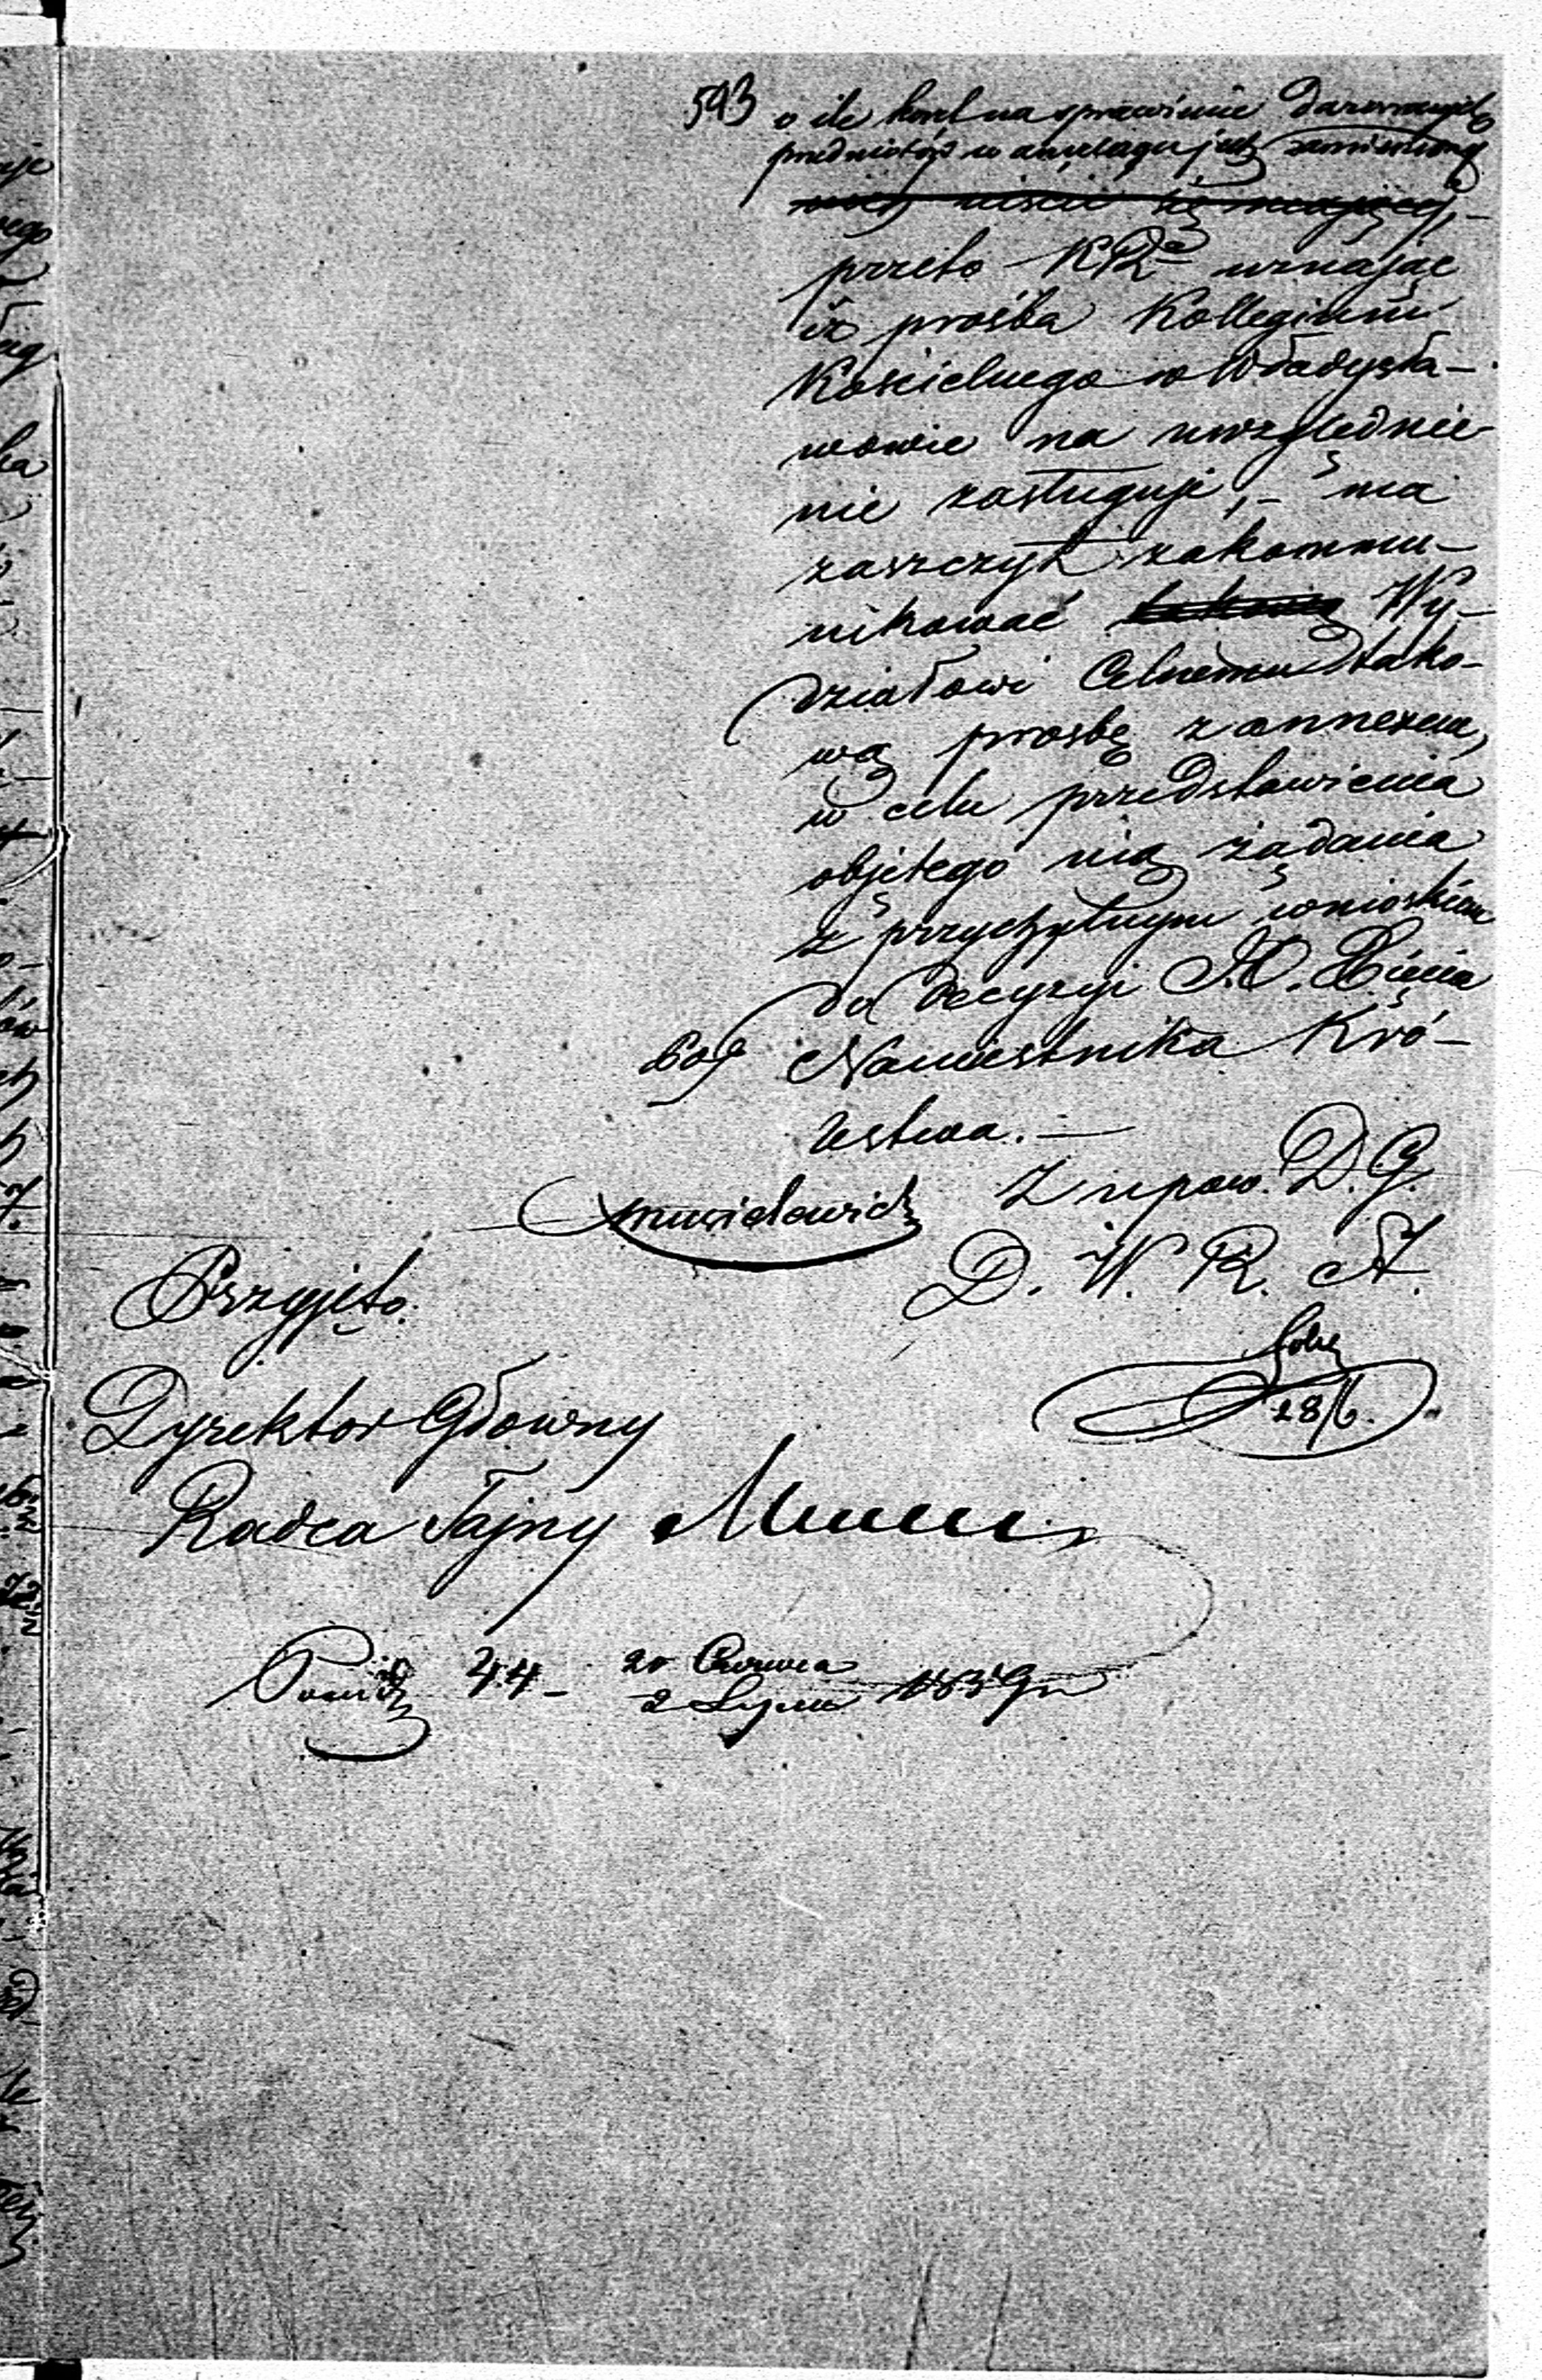 593
o ile koszt na sprawienie darowanych
przedmiotów w jest zamieniony
przeto KR uznając
iż prośba Kollegium
Kościelnego w Władysła-
wowie na uwzględnie-
nie zasługuje, - ma
zaszczyt zakommu-
nikować Wy-
działowi Celnemu tako-
wą prosbę z annexem,
w celu przedstawienia
objętego nią żądania
z przychylnym wnioskiem
do decyzyi J.O. Xięcia
Namiestnika Kró-
lestwa. —
Z upow. D.G.
D. W. R. A.
28/6.
Przyjęto.
Dyrektor Główny
Radca Tajny
44 - 20 Czerwca
2 Lipca 1859 r